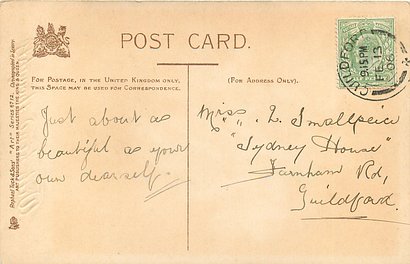 POST CARD.
FOR POSTAGE, IN THE UNITED KINGDOM ONLY,
THIS SPACE MAY BE USED FOR CORRESPONDENCE.
(FOR ADDRESS ONLY).
Just about as
beautiful as your
own dearself.
Miss L Smallpeice
"Sydney House"
Farnham Rd,
Guildford.
GUILDFORD
9.15PM
FE 13
06
Raphael Tuck & Sons' "Art" Series 6712.
ART PUBLISHERS TO THEIR MAJESTIES THE KING & QUEEN.